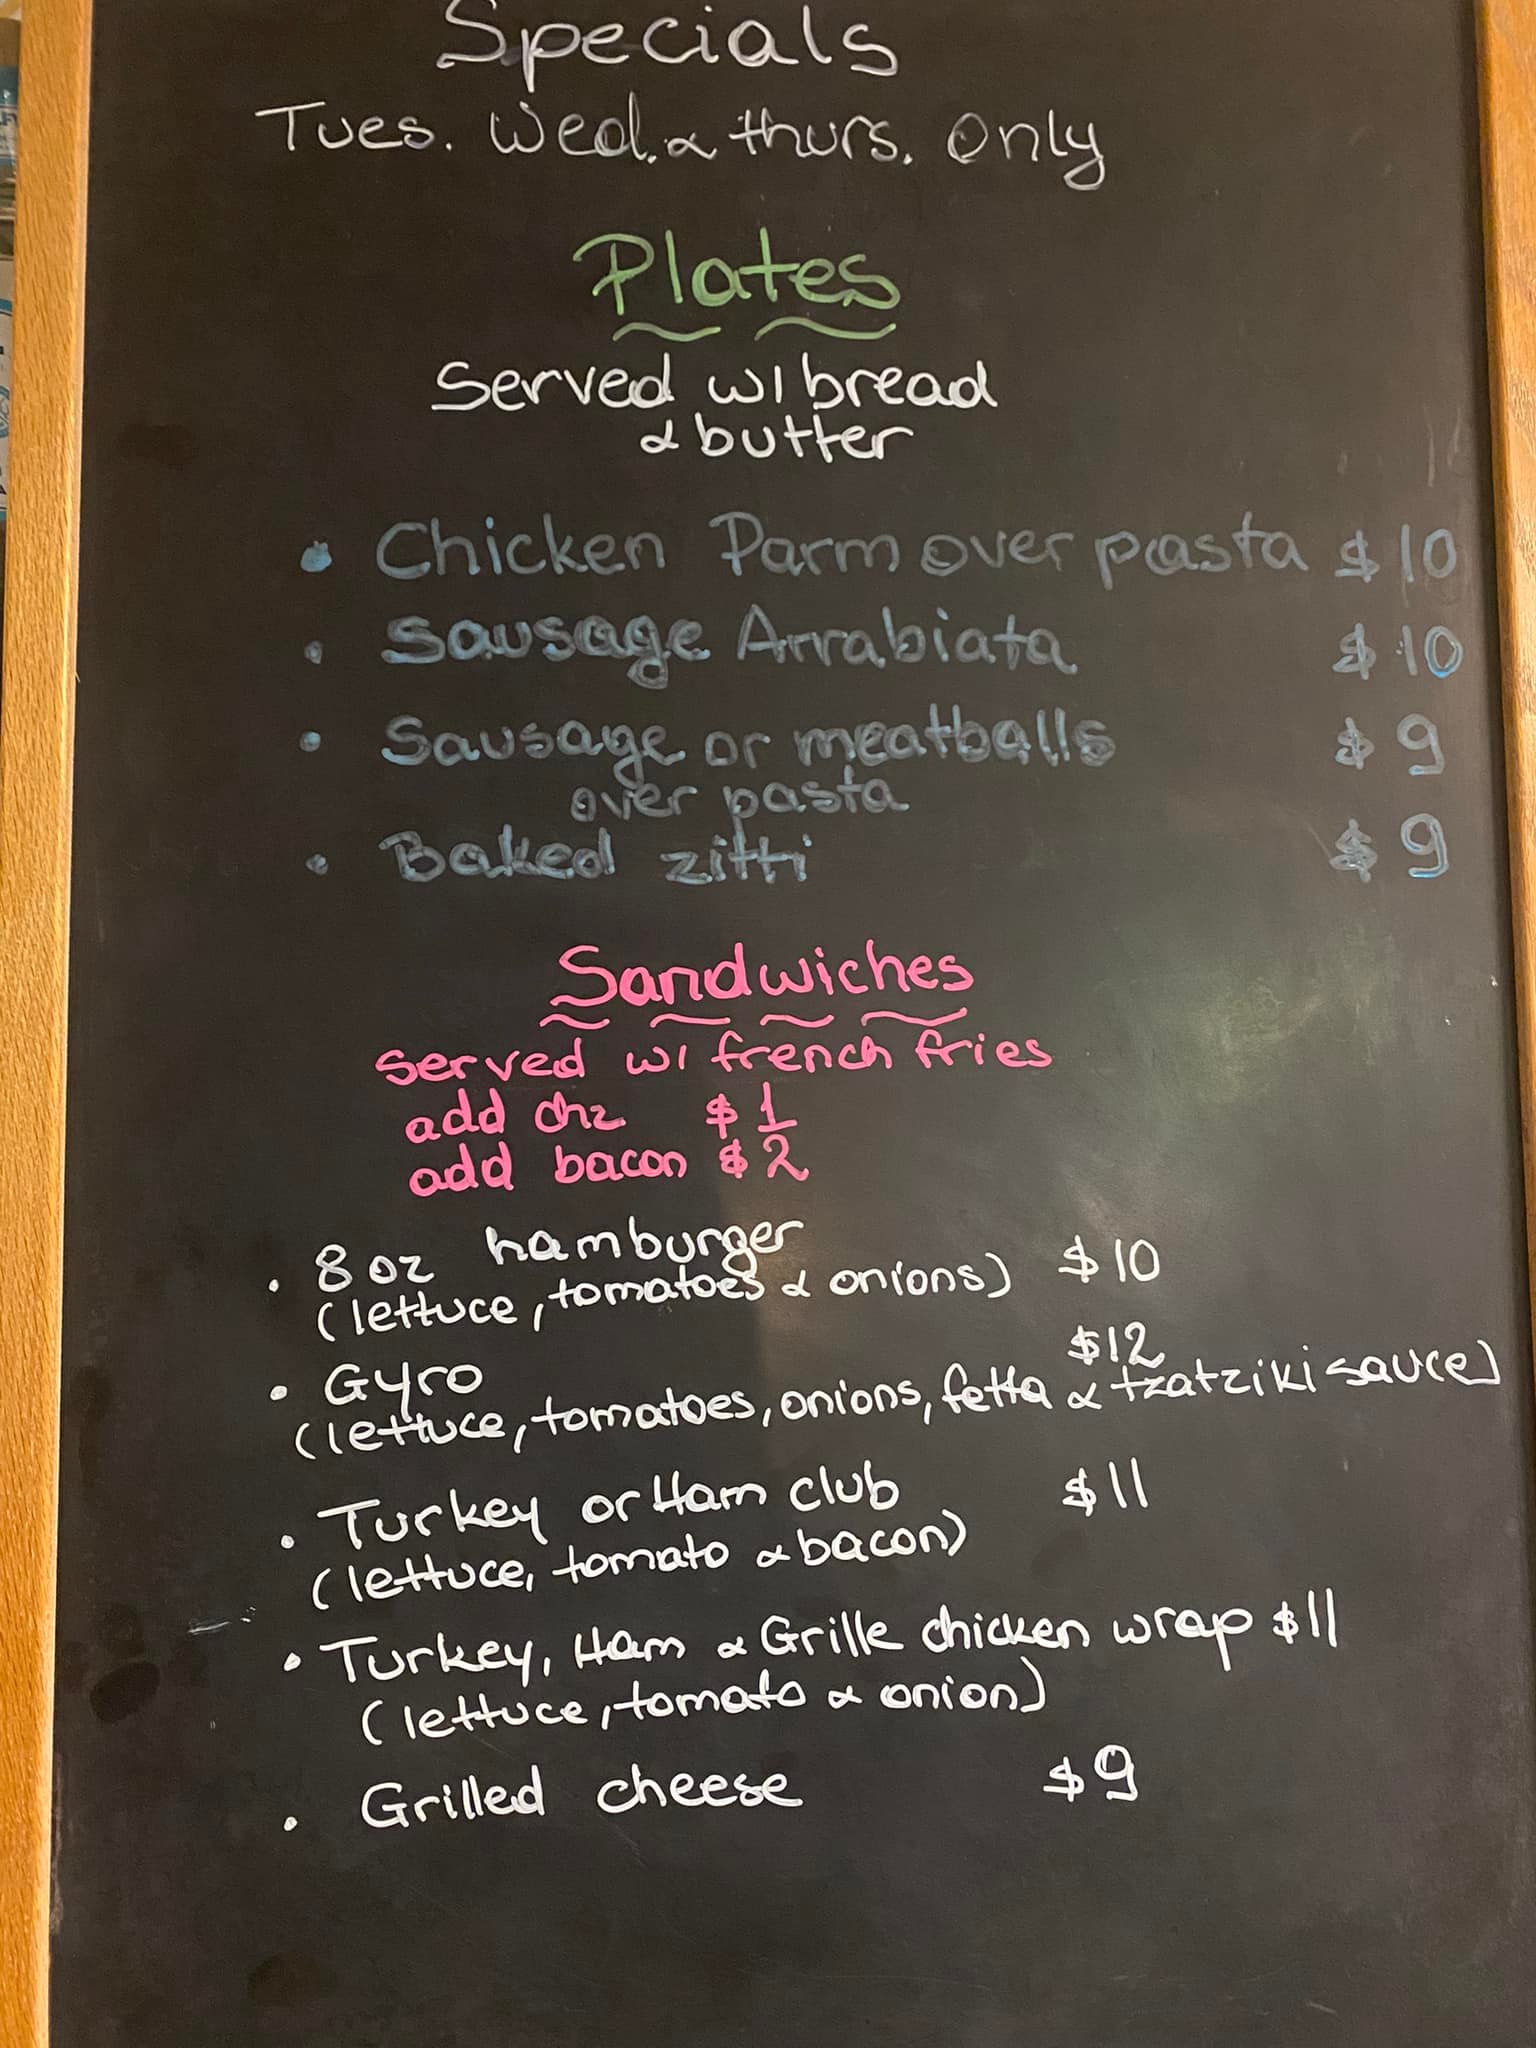 Specials
Tues. Wed. & thurs. Only
Plates
Served w/ bread
& butter
• Chicken Parm over pasta $10
• Sausage Arrabiata $10
• Sausage or meatballs $9
over pasta
• Baked zitti $9
Sandwiches
served w/ french fries
add chz $1
add bacon $2
• 8 oz hamburger $10
(lettuce, tomatoes & onions)
• Gyro $12
(lettuce, tomatoes, onions, fetta & tzatziki sauce)
• Turkey or Ham club $11
(lettuce, tomato & bacon)
• Turkey, Ham & Grille chicken wrap $11
(lettuce, tomato & onion)
• Grilled cheese $9